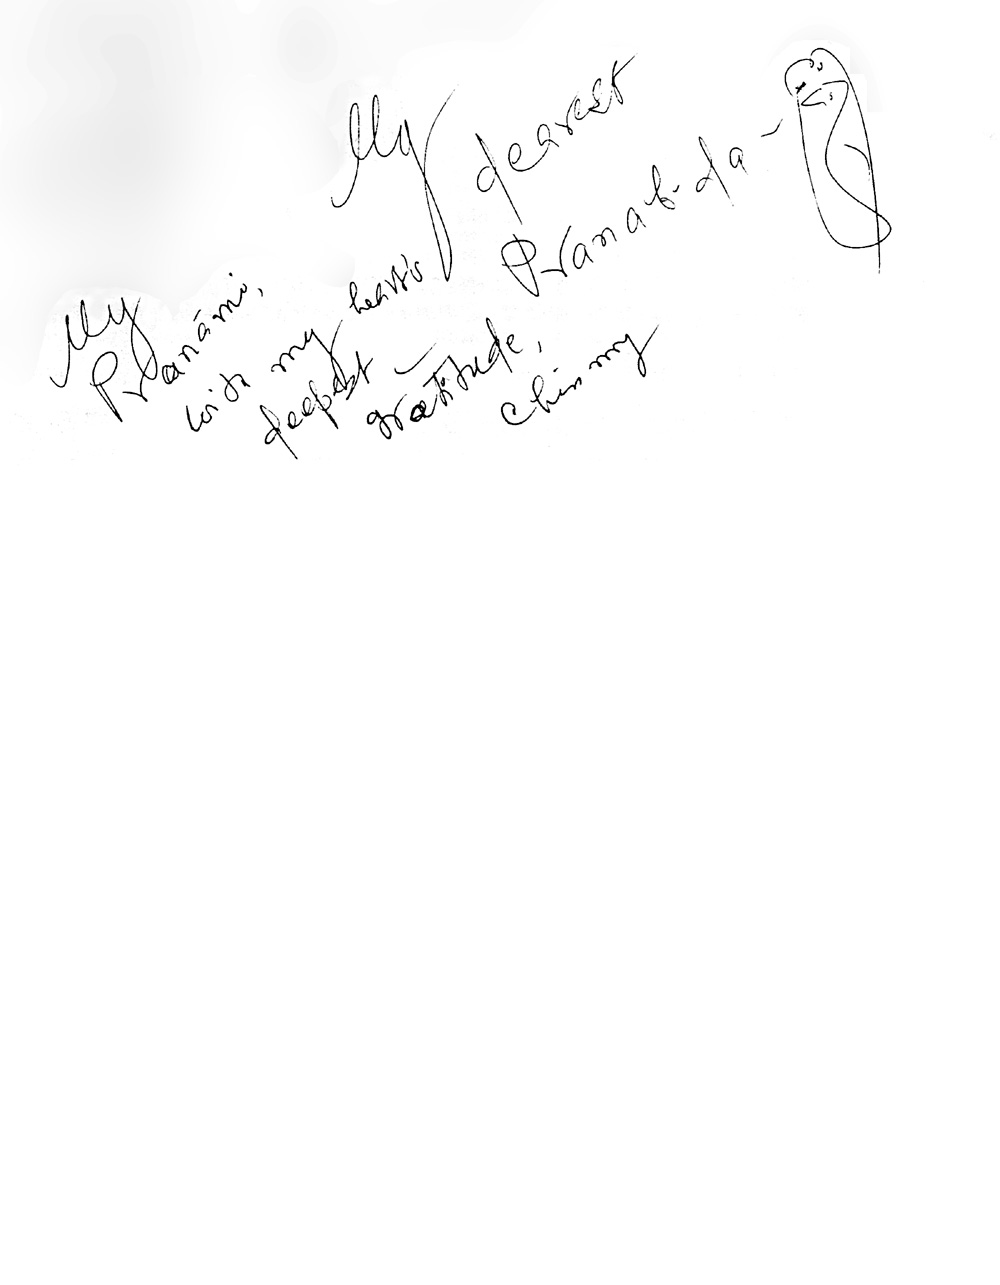 My dearest
Pranab-da -
My
Pranāmi,
with my heart's
deepest -
gratitude,
Chinmoy